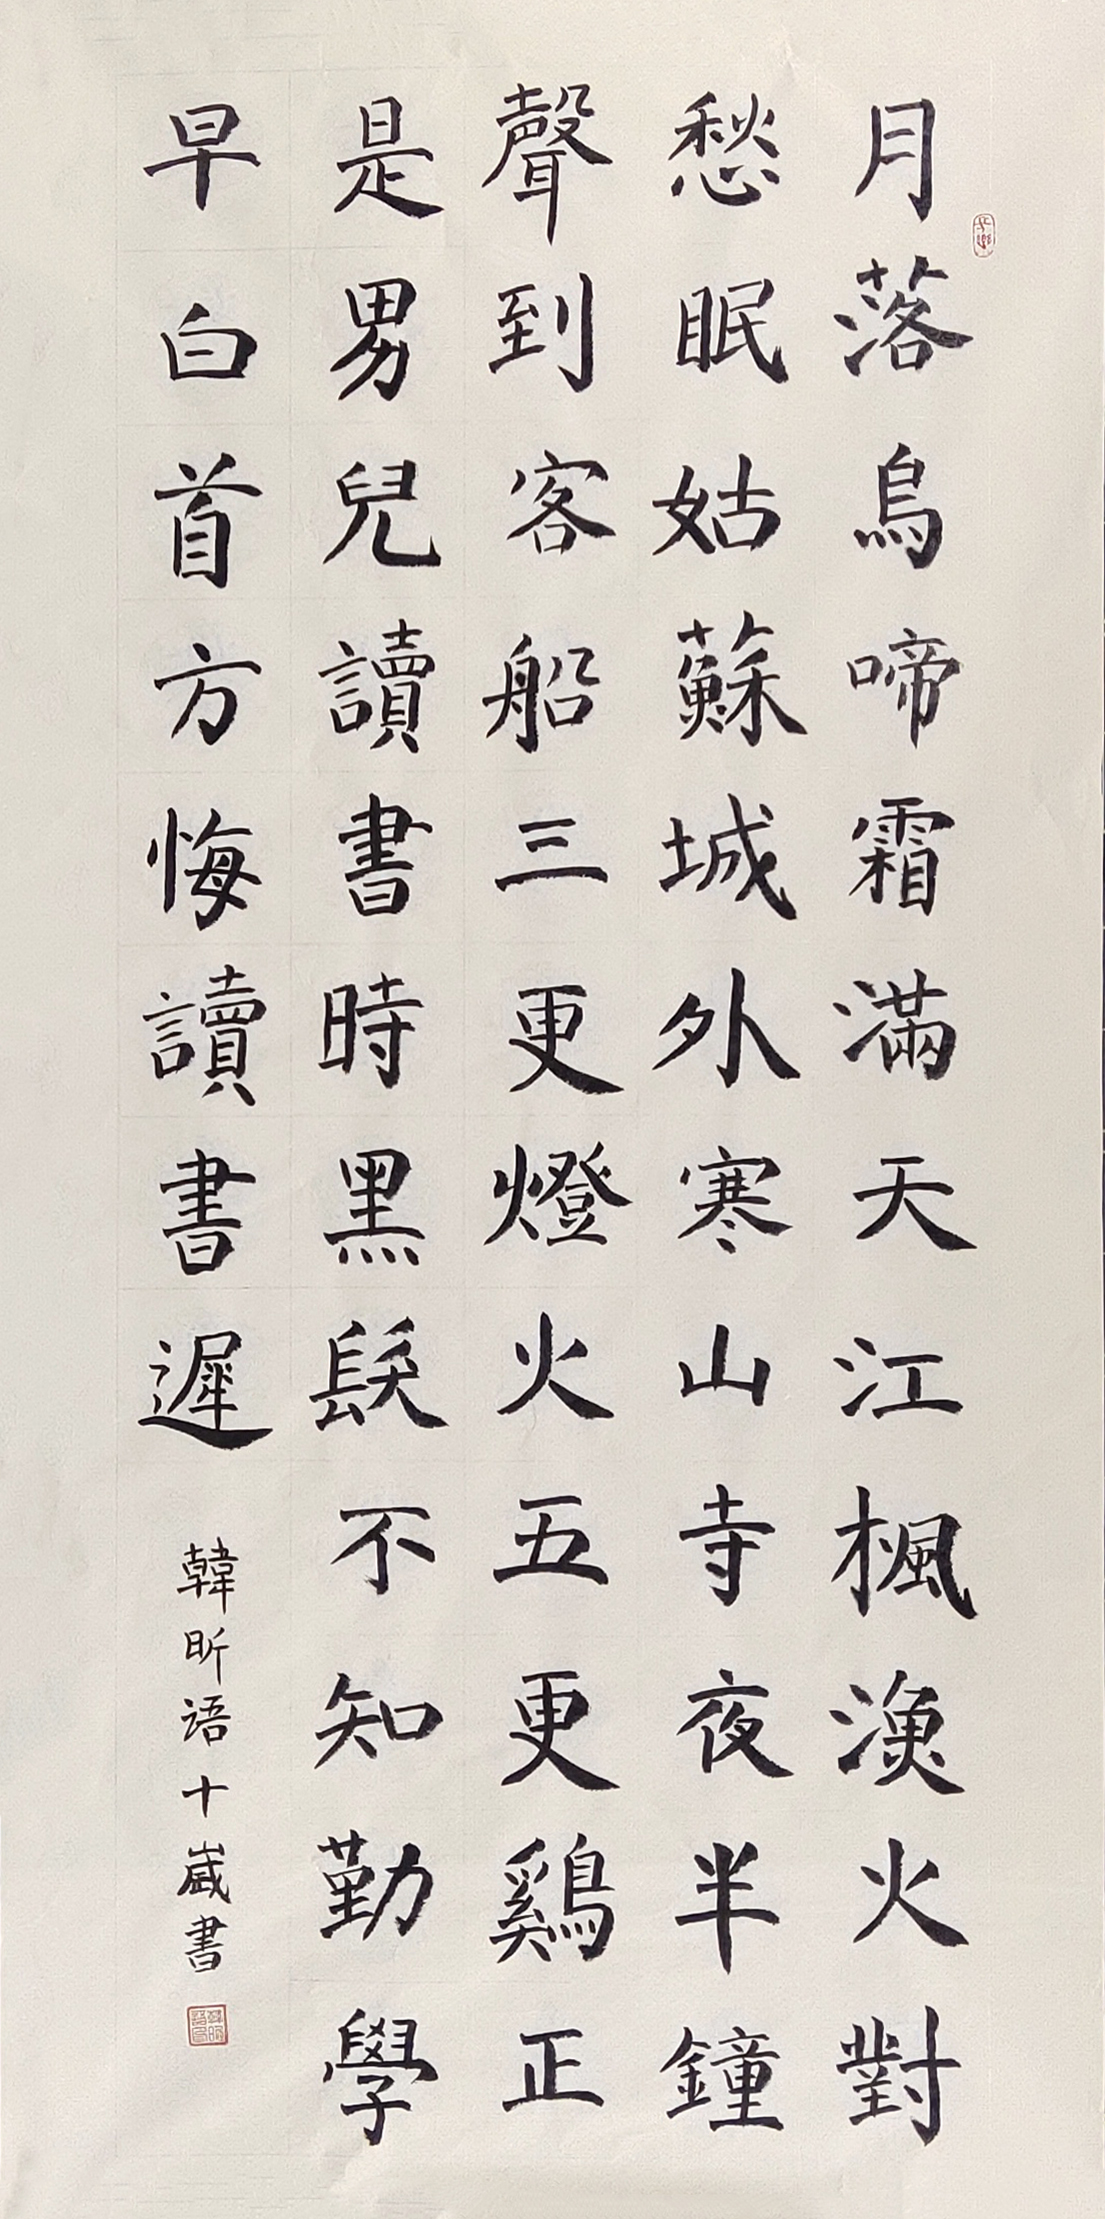 月落烏啼霜滿天江楓漁火對
愁眠姑蘇城外寒山寺夜半鐘
聲到客船三更燈火五更鷄正
是男兒讀書時黑髮不知勤學
早白首方悔讀書遲
韓昕语十歲書